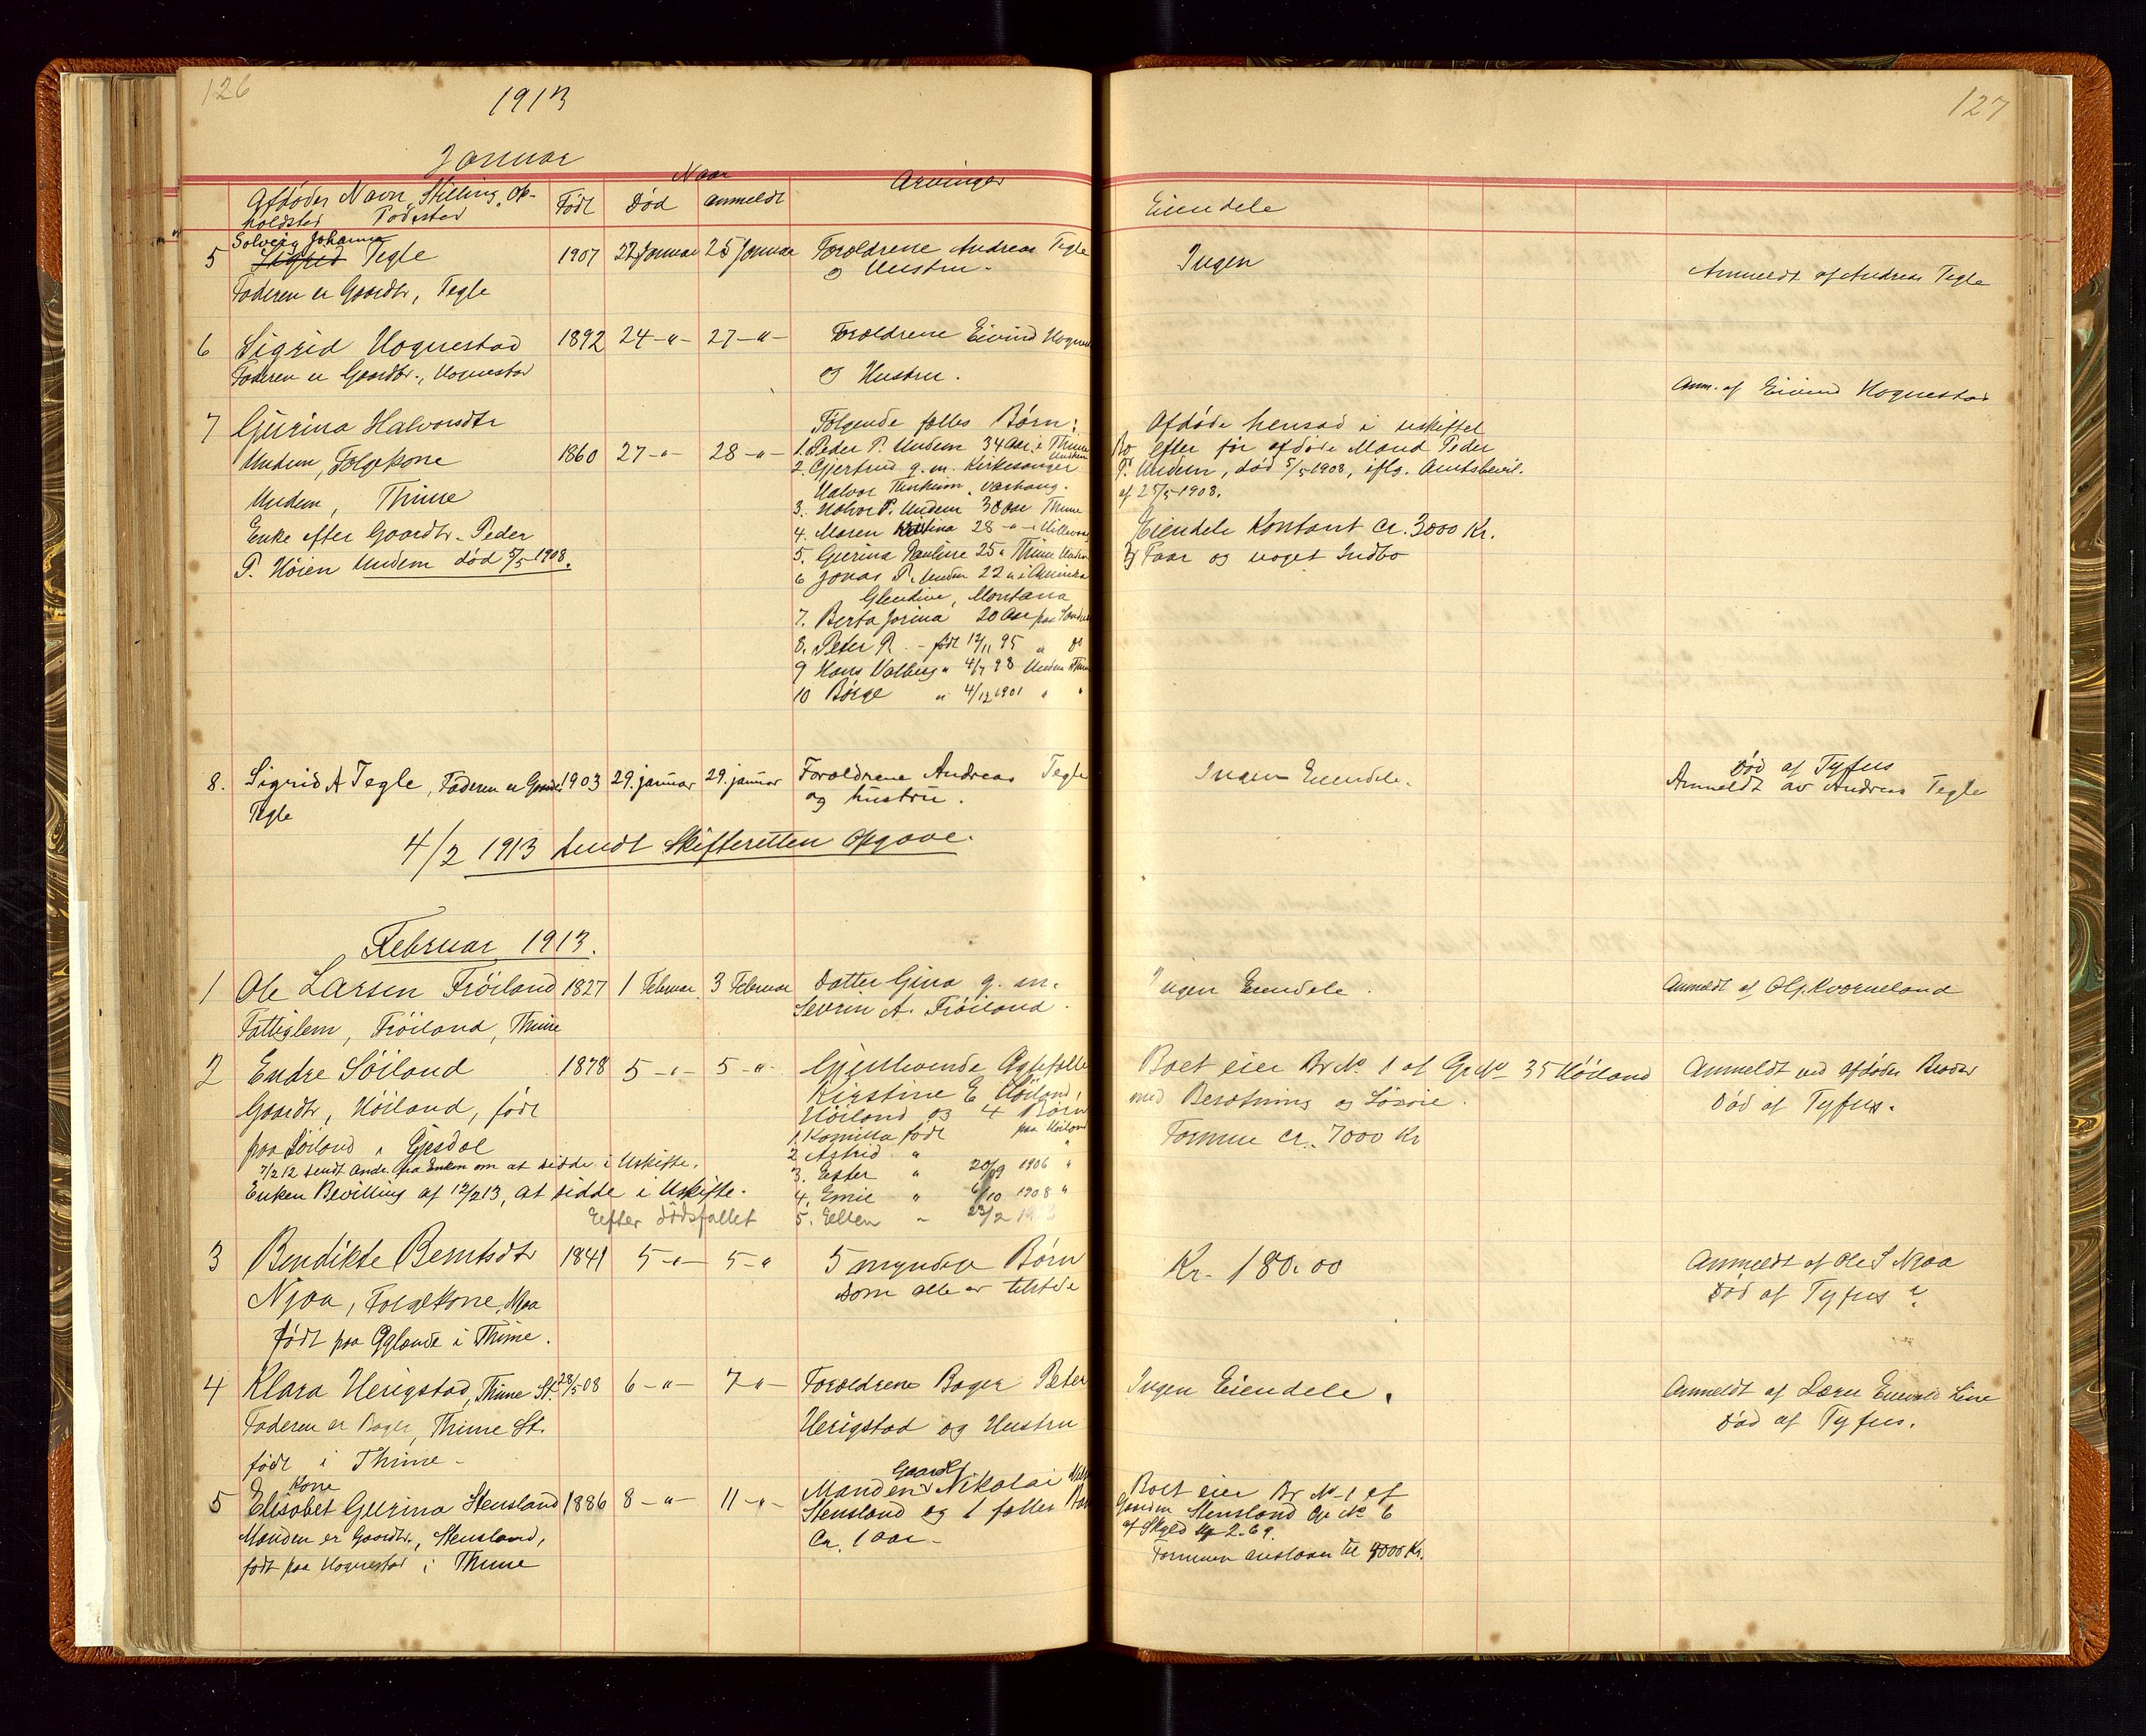 126
1913
127
Januar
Naar
Afdødes Navn, Stilling, Op-
holdsted Fødested
Født
Død
anmeldt
Arvinger
Eiendele
Solveig Johanne
5 Sigrid Tegle 1907 22 Januar 25 Januar Forældrene Andreas Tegle
og Hustru.
Ingen
Anmeldt af Andreas Tegle
Faderen er Gaardbr, Tegle
6 Sigrid Hognestad 1892 24 -"- 27 -"- Forældrene Eivind
og Hustru.
Faderen er Gaardbr., Hognestad
Anm. af Eivind Hognestad
7 Gjurina Halvorsdtr
Undem, Folgekone 1860 27 -"- 28 -"-
Undem, Thime
Enke efter Gaardbr. Peder
P. Høien Undem død 5/5 1908.
Følgende fælles Børn:
1. Peder P. Undem 34 Aar i Thime
Undem
2. Gjertrud g. m. Kirkesanger
Halvor Varhaug.
3. Halvor P. Undem 30 Aar Thime
4. Maren 28 -"-
5. Gurina Pauline 25 " Thime
6 Jonas P. Undem 22 " i Amerika
Glendive, Montana
7. Berta Jorina 20 Aar paa
8. Peter P. - født 12/11 95 " do
9 Hans Valberg " 4/7 98 Undem
10 Børge " 4/12 1901 " "
Afdøde hensad i uskiftet
Bo efter før afdøde Mand Peder
P. Undem, død 5/5 1908, iflg. Amtsbevil.
af 25/5 1908.
Eiendele Kontant ca. 3000 Kr.
Faar og noget Indbo
8. Sigrid A Tegle, Faderen er 1903 29. januar 29. januar Forældrene Andreas Tegle
Tegle
og hustru.
Ingen Eiendele.
Død af Tyfus
Anmeldt av Andreas Tegle
4/2 1913 sendt Skifteretten Opgave.
Februar 1913.
1 Ole Larsen Frøiland 1827 1 Februar 3 Februar Datter Gina g. m.
Severin A. Frøiland.
Ingen Eiendele.
Anmeldt af Ol. J. Kværneland
Fattiglem, Frøiland, Thime
2 Endre Søiland 1878 5 -"- 5 -"- Gjenlevende Ægtefælle
Kirstine E Høiland,
Høiland og 4 Børn
Gaardbr, Høiland, født
paa Søiland i Gjesdal
7/2 12 sendt Andr. fra Enken om at sidde i Uskifte.
Enken Bevilling af 12/2 13, at sidde i Uskifte.
Eefter dødsfallet
1. Kamilla født paa
2 Astrid " "
3. Ester " 20/9 1906 "
4. Emil " 6/10 1908 "
5. Ellen " 23/2 1913
Boet eier Br.No 1 af Gr.No 35 Høiland
med Besætning og Løsøre.
Formue ca. 7000 Kr
Anmeldt ved afdødes Broder
Død af Tyfus.
3 Bendikte Berntsdtr 1841 5 -"- 5 -" 5 myndige Børn
som alle er tilstede
Njaa, Folgekone, Njaa
født paa i Thime.
Kr. 180.00
Anmeldt af Ole S Njaa
Død af Tyfus ?
4 Klara Herigstad, Thime St. 28/5 08 6 -"- 7 -"- Forældrene Bager Peter
Herigstad og Hustru
Faderen er Bager, Thime St.
født i Thime -
Ingen Eiendele.
Anmeldt af Lærer Line
Død af Tyfus.
Kone
5 Elisabet Gurina Stensland 1886 8 -"- 11 -"- Manden Gaardbr Nikolai
Stensland og 1 fælles
Ca. 1 aar -
Manden er Gaardbr., Stensland,
født paa Hognestad i Thime
Boet eier Br No 1 af
Gaarden Stensland Gr No 6
af Skyld 2.69.
Formuen anslaaes til 4000 Kr.